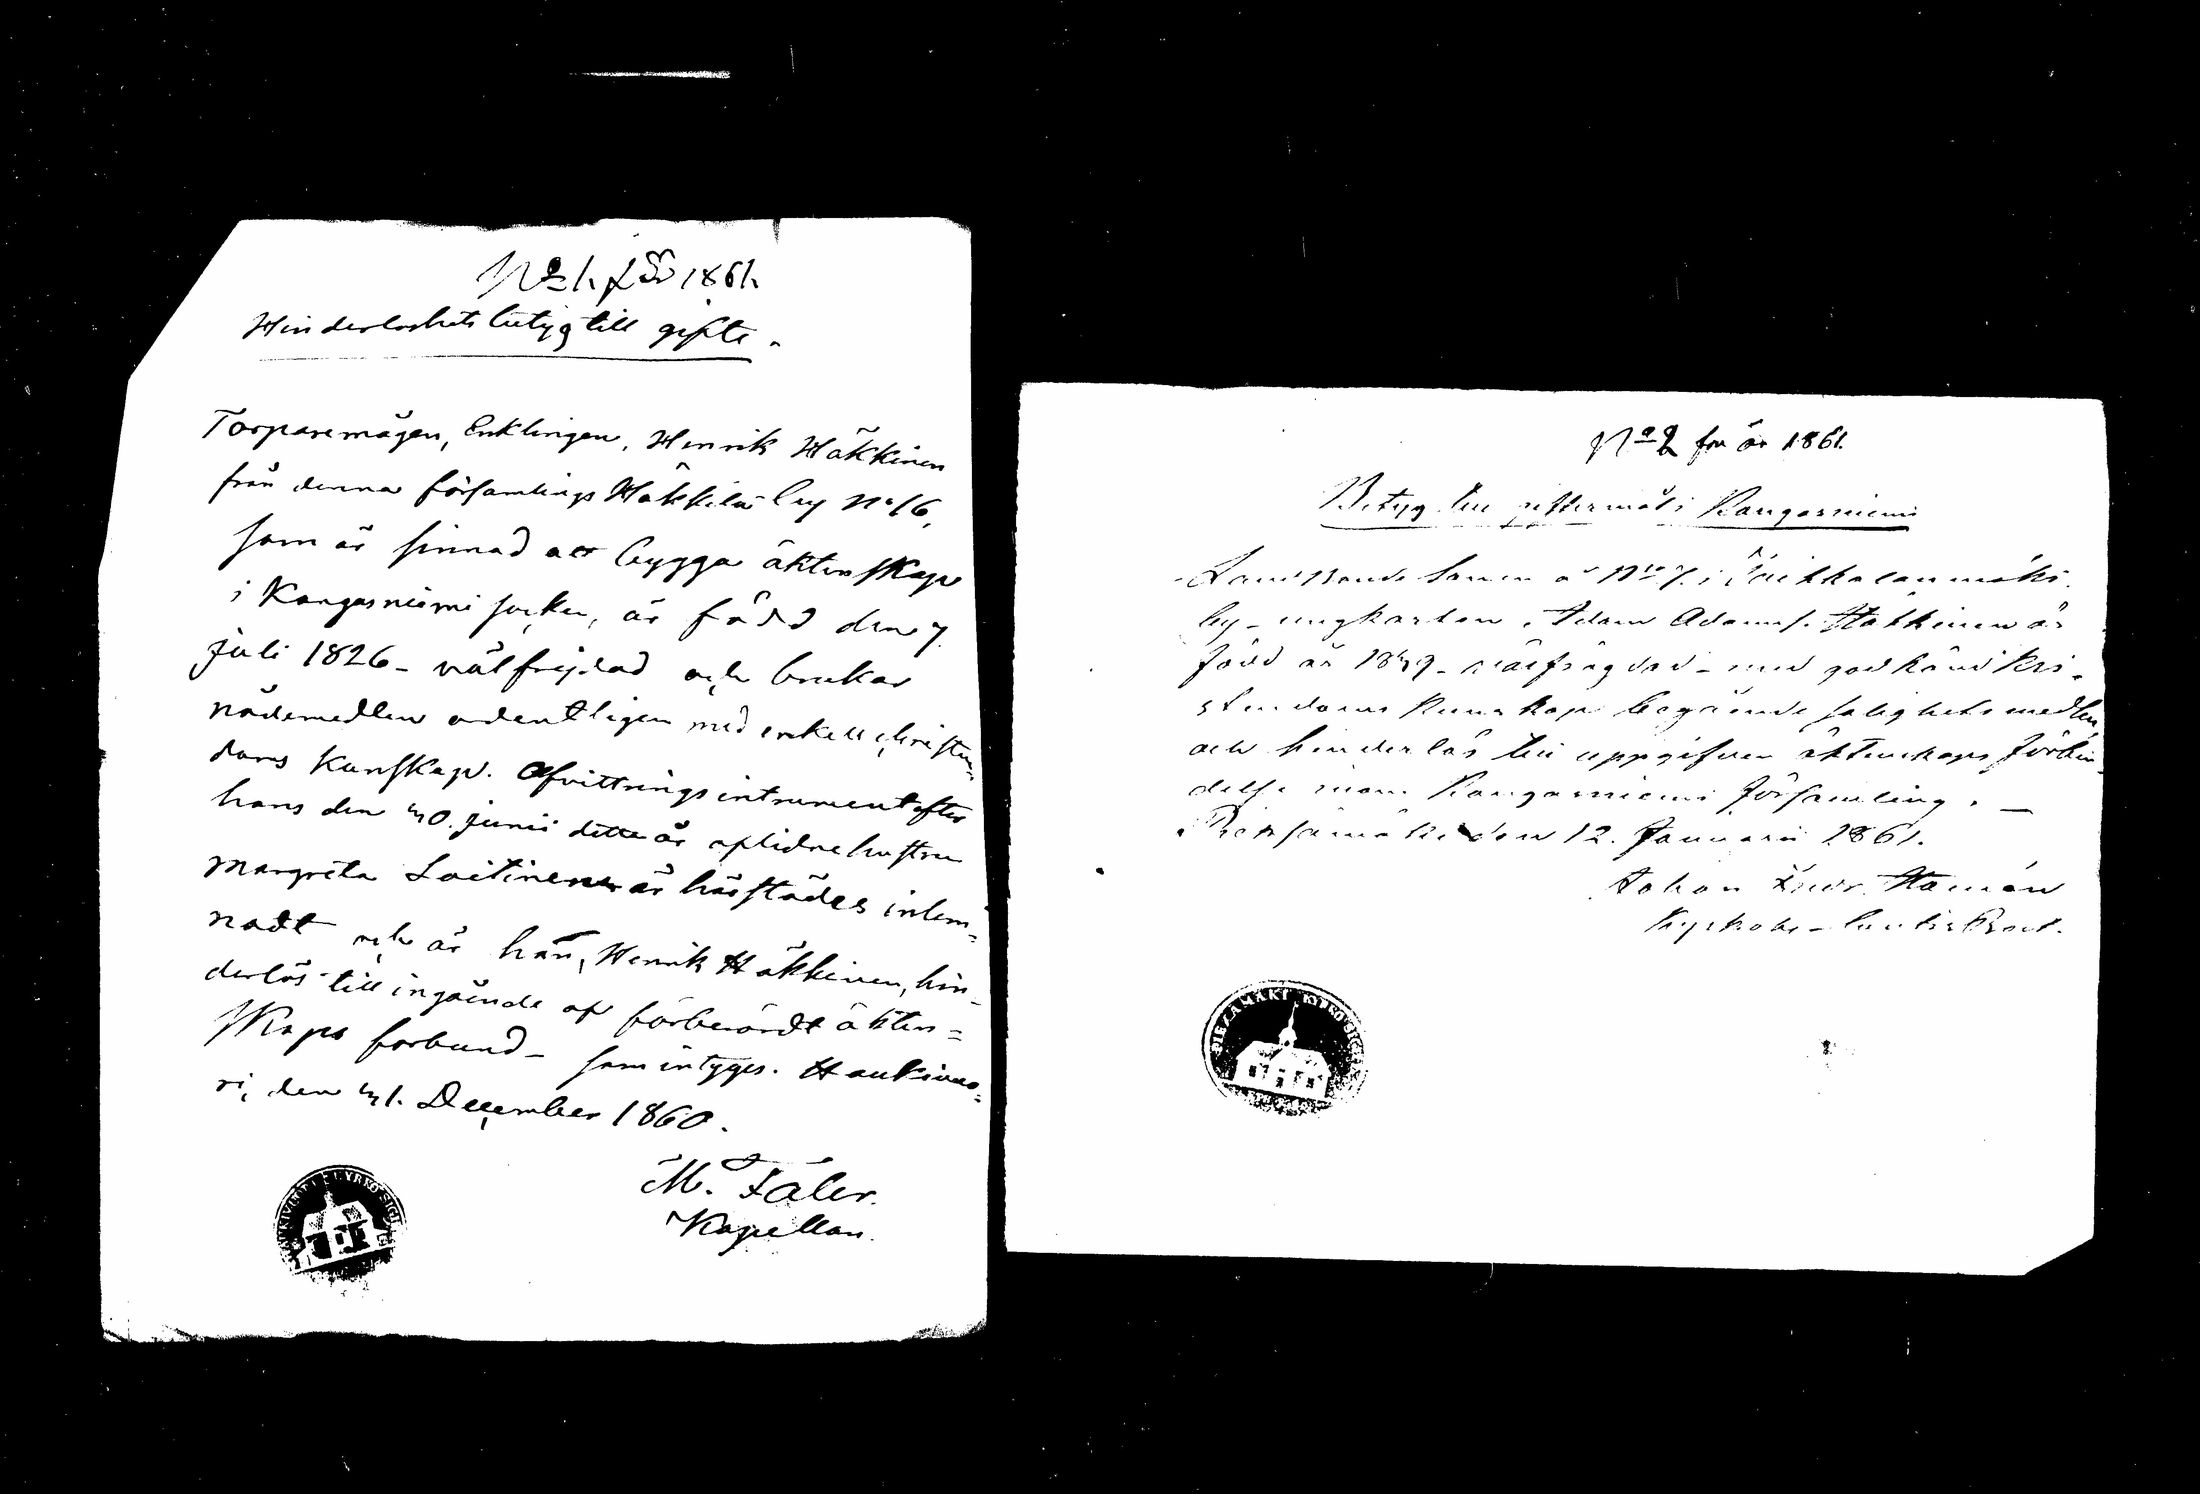 No 1. för 1861.
Hinderloshets betyg till gifte.
Torparemågen, Enklingen, Henrik Häkkinen
från denna församlings Häkkilä by No 16,
som är sinnad att bygga äktenskap
i Kangasniemi socken, är född den 7.
juli 1826 – välfrejdad och brukar
nådemedlen ordentligen med enkell christen-
doms kunskap. Afvittringsintrument efter
hans den 30. junii detta år aflidne hustru
Margreta Loitinen är härstädes inlem-
nadt och är han, Henrik Häkkinen, hin-
derlös till ingående af förberördt äkten-
skaps forbund – som intyges. Haukivuo-
ri, den 31. December 1860.
M. Faler.
Kapellan.
KYRKO SIGILL
No 2 for år 1861.
Betyg till giftermål i Kangasniemi
Landbonde Sonen å No 7. i
by – ungkarlen, Adam Adams. Häkkinen är
född år – välfrägdad – med godkänd kri-
stendoms kunskap begående salighetsmedlen
och hinderlös till uppgifven äktenskaps förbin-
delse inom Kangasniemi församling. –
Pieksämäki den 12. Januarii 1861.
Johan Hamén
PIEKSÄMÄKI KYRKO SIGILL